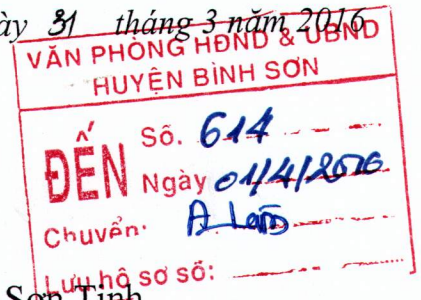 ày 31 tháng 3 năm 2016
VĂN PHÒNG HĐND & UBND
HUYỆN BÌNH SƠN
ĐẾN
Số. 614
Ngày 01/4/2016
Chuyển: A Lâm
Lưu hồ sơ số:
Sơn Tịnh